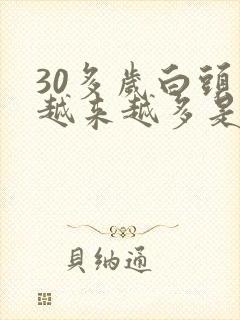 30多歲白頭
越来越多是
貝納通